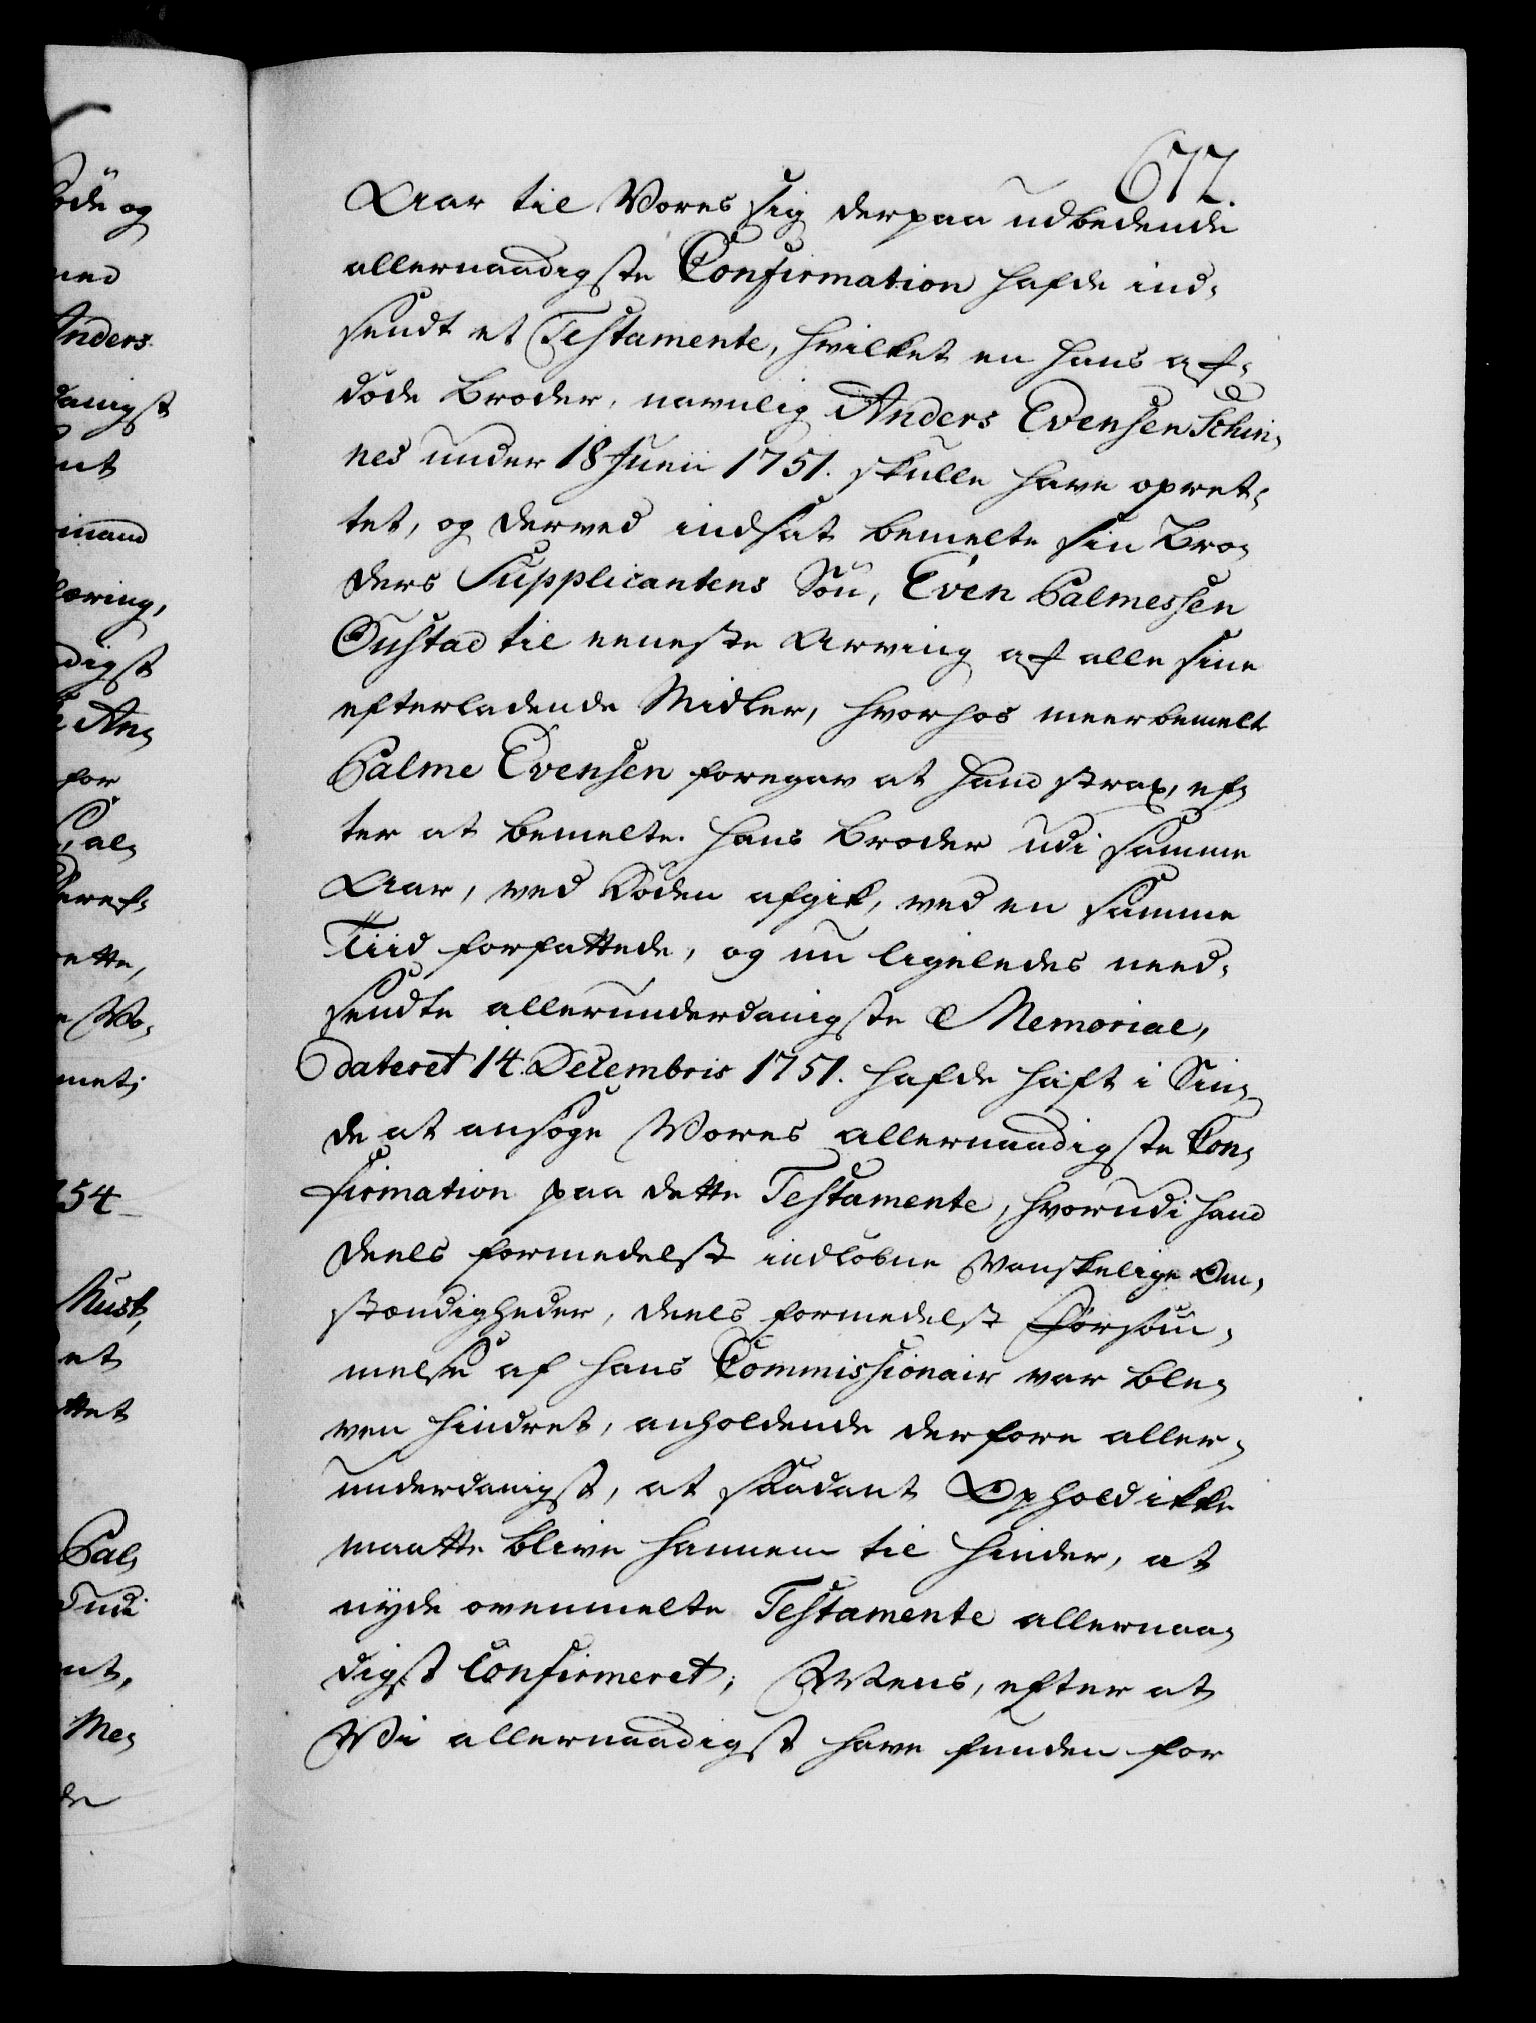 677.
Aar til Vores sig derpaa udbedende
allernaadigste Confirmation hafde ind-
sendt et Testamente, hvilket en hans af-
døde Broder, navnlig Anders Evensen Schin-
nes under 18 Junii 1751. skulle have opret-
tet, og derved indsat bemelte sin Bro-
ders Supplicantens Søn, Even Palmessen
Gustad til eeneste Arving af alle sine
efterladende Midler, hvorhos meerbemelt
Palme Evensen foregav at hand strax, ef-
ter at bemelte hans Broder udi samme
Aar, ved Døden afgik, ved en samme
Tiid forfattede, og nu ligeledes need-
sendte allerunderdanigste Memorial,
dateret 14. Decembris 1751. hafde haft i Sin-
de at ansøge Vores allernaadigste Con-
firmation paa dette Testamente, hvorudi hand
deels formedelst indløbne vanskelige Om-
stændigheder, deels formedelst Forsøm-
melse af hans Commissionair var ble-
ven hindret, anholdende derfore aller-
underdanigst, at saadant Ophold ikke
maatte blive hannem til Hinder, at
nyde ovenmelte Testamente allernaa-
digst Confirmeret; Altens, efter at
Vi allernaadigst have funden for